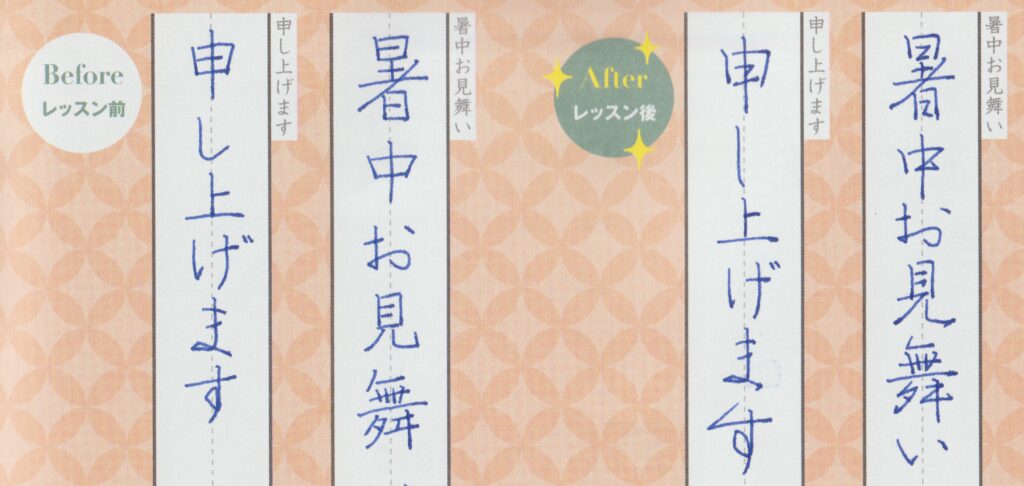 Before
レッスン前
暑中お見舞い
暑中お見舞
申し上げます
申し上げます
After
レッスン後
暑中お見舞い
暑中お見舞い
申し上げます
申し上げます